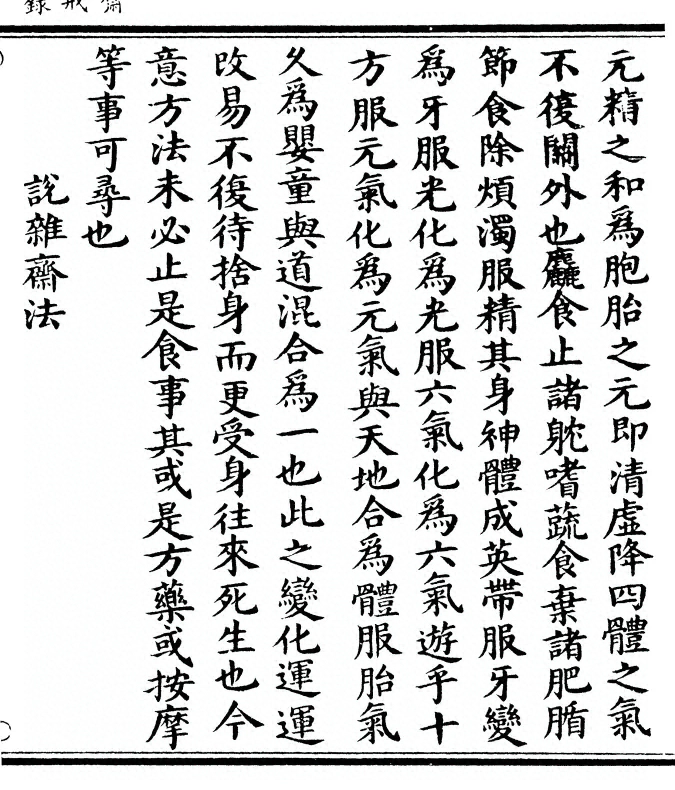 齋戒録
元精之和為胞胎之元即清虛降四體之氣
不復關外也麤食止諸躭嗜蔬食棄諸肥腯
節食除煩濁服精其身神體成英帶服牙變
為牙服光化為光服六氣化為六氣遊乎十
方服元氣化為元氣與天地合為體服胎氣
久為嬰童與道混合為一也此之變化運運
改易不復待捨身而更受身往來死生也今
意方法未必止是食事其或是方藥或按摩
等事可尋也
說雜齋法